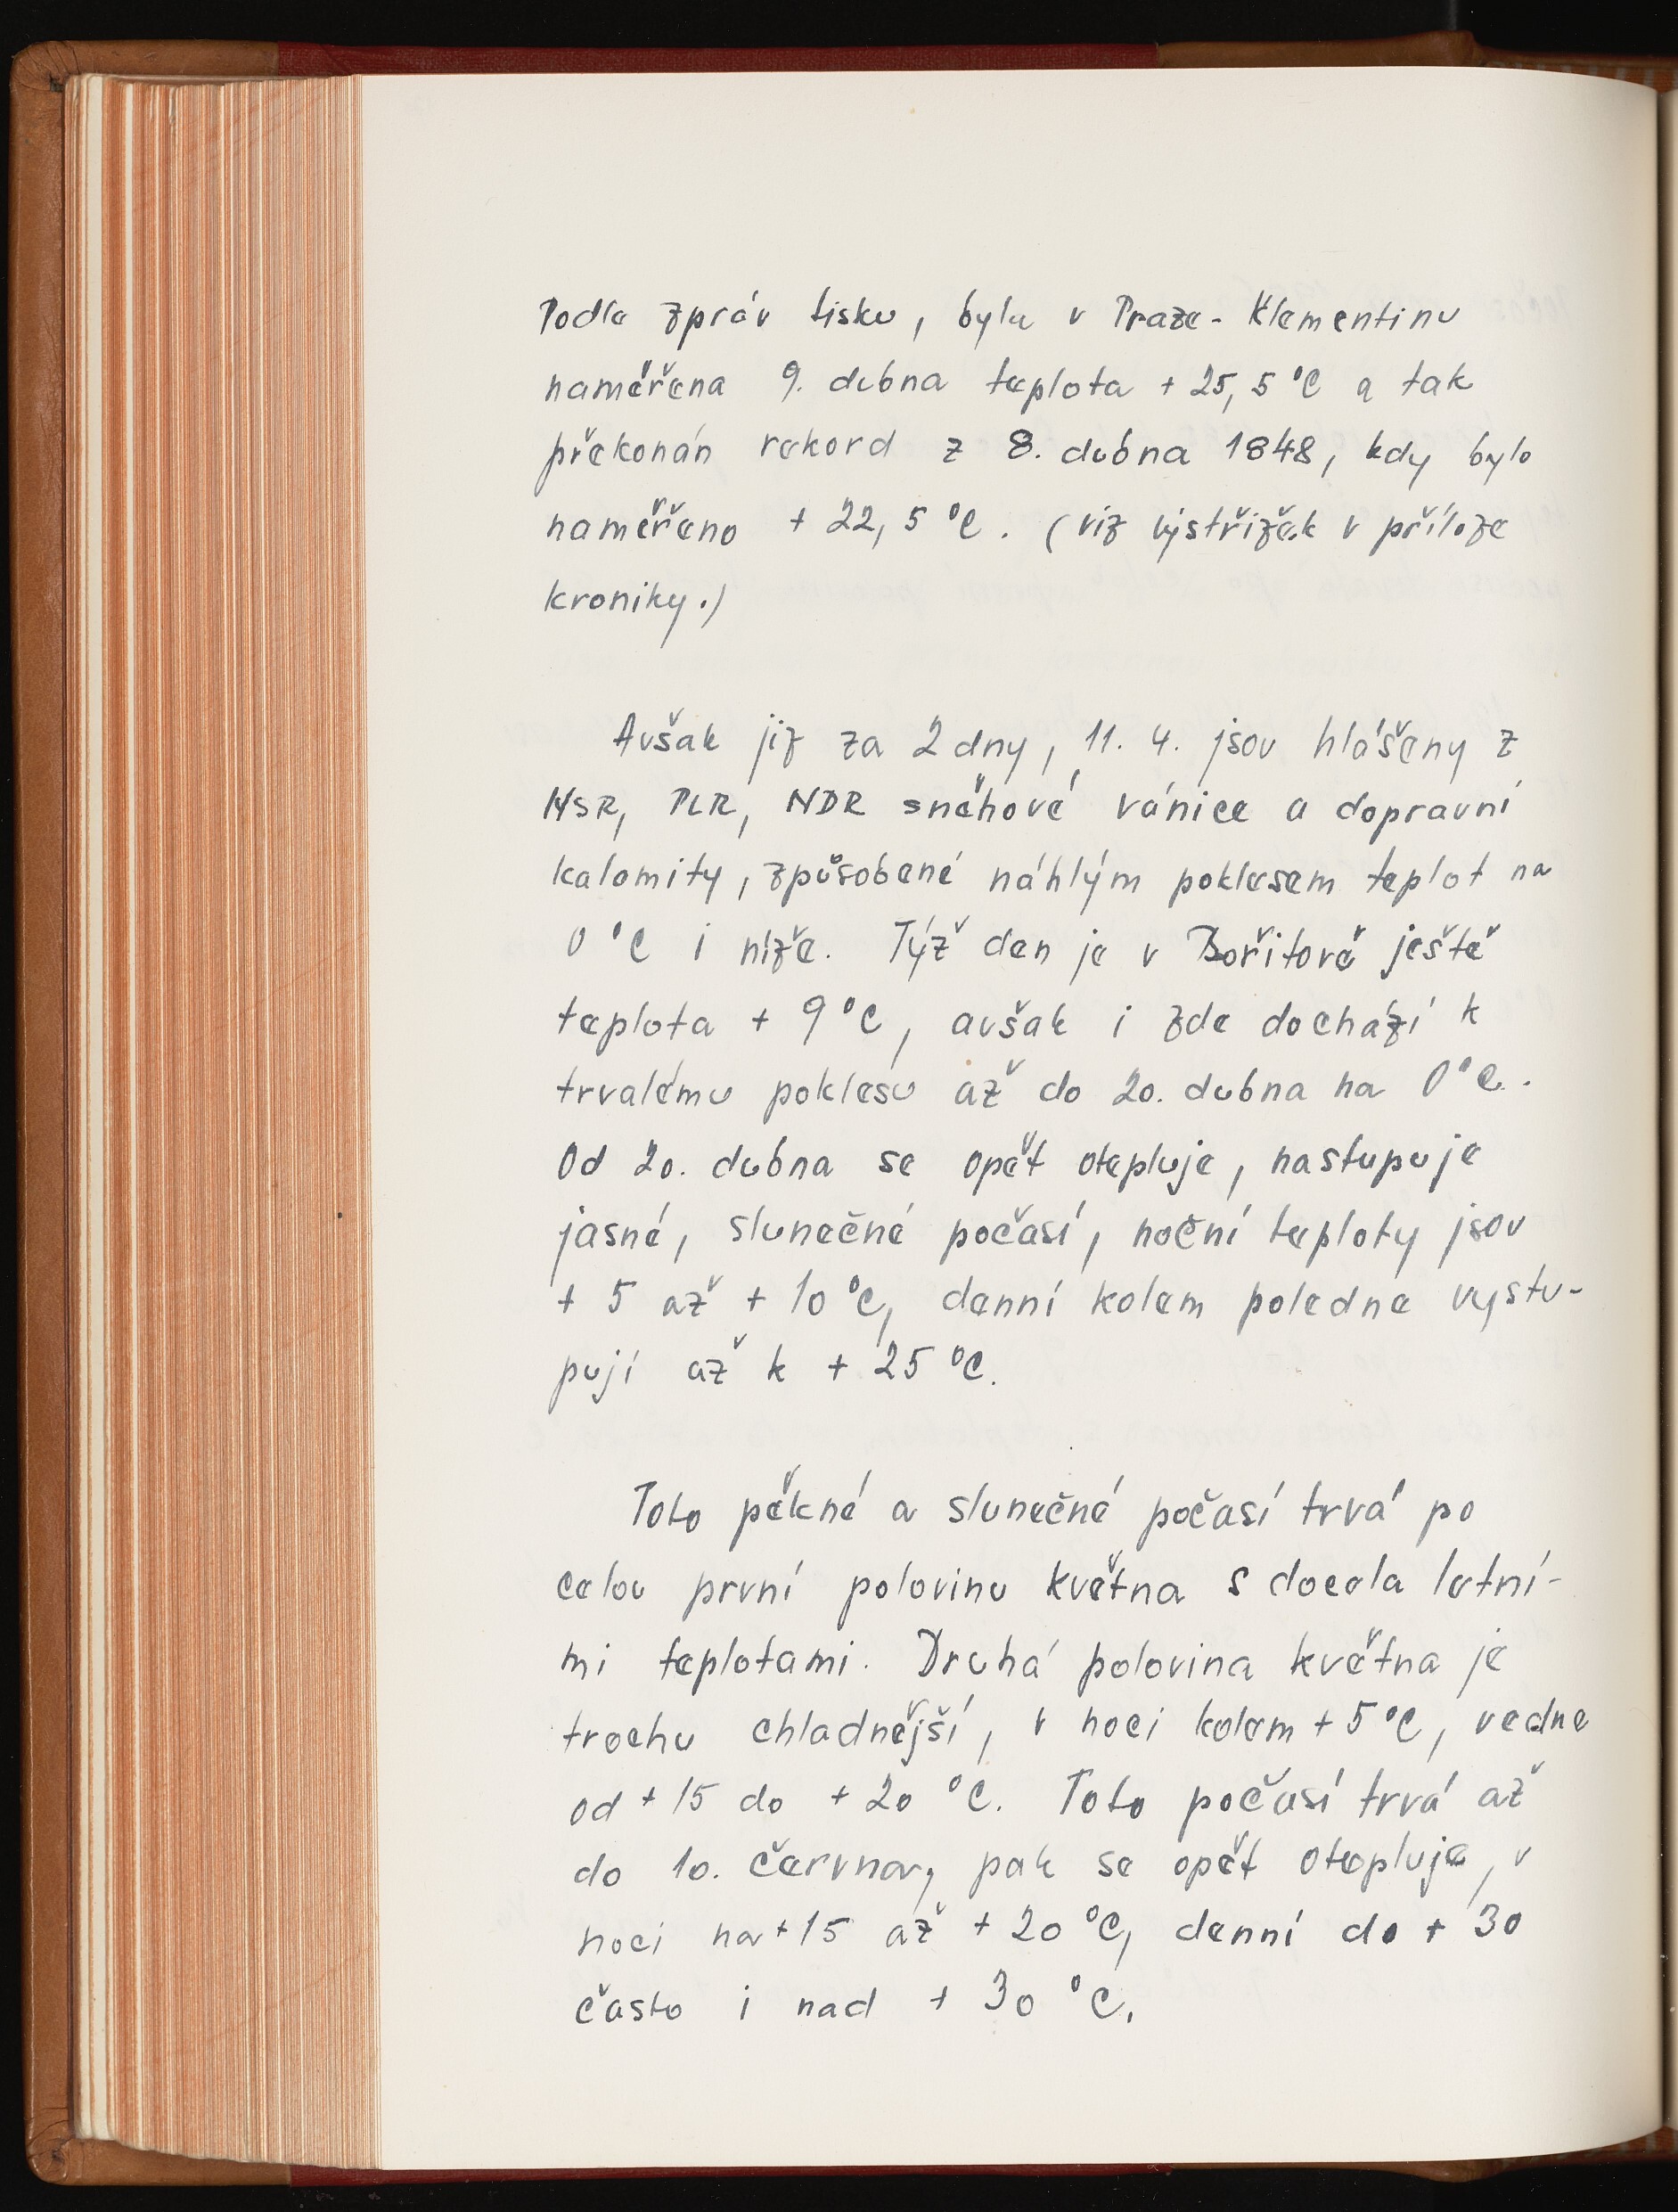 Podle zpráv tisku, byla v Praze - Klementinu
naměřena 9. dubna teplota + 25,5 °C a tak
překonán rekord z 8. dubna 1848, kdy bylo
naměřeno + 22,5 °C. (viz výstřižek v příloze
kroniky.)
Avšak již za 2 dny, 11. 4. jsou hlášeny z
NSR, PLR, NDR sněhové vánice a dopravní
kalamity, způsobené náhlým poklesem teplot na
0 °C i níže. Týž den je v Bořitově ještě
teplota + 9 °C, avšak i zde dochází k
trvalému poklesu až do 20. dubna na 0 °C.
Od 20. dubna se opět otepluje, nastupuje
jasné, slunečné počasí, noční teploty jsou
+ 5 až + 10 °C, denní kolem poledne vystu-
pují až k + 25 °C.
Toto pěkné a slunečné počasí trvá po
celou první polovinu května s docela letní-
mi teplotami. Druhá polovina května je
trochu chladnější, v noci kolem + 5 °C, vedne
od + 15 do + 20 °C. Toto počasí trvá až
do 10. června, pak se opět otepluje, v
noci na + 15 až + 20 °C, denní do + 30
často i nad + 30 °C.